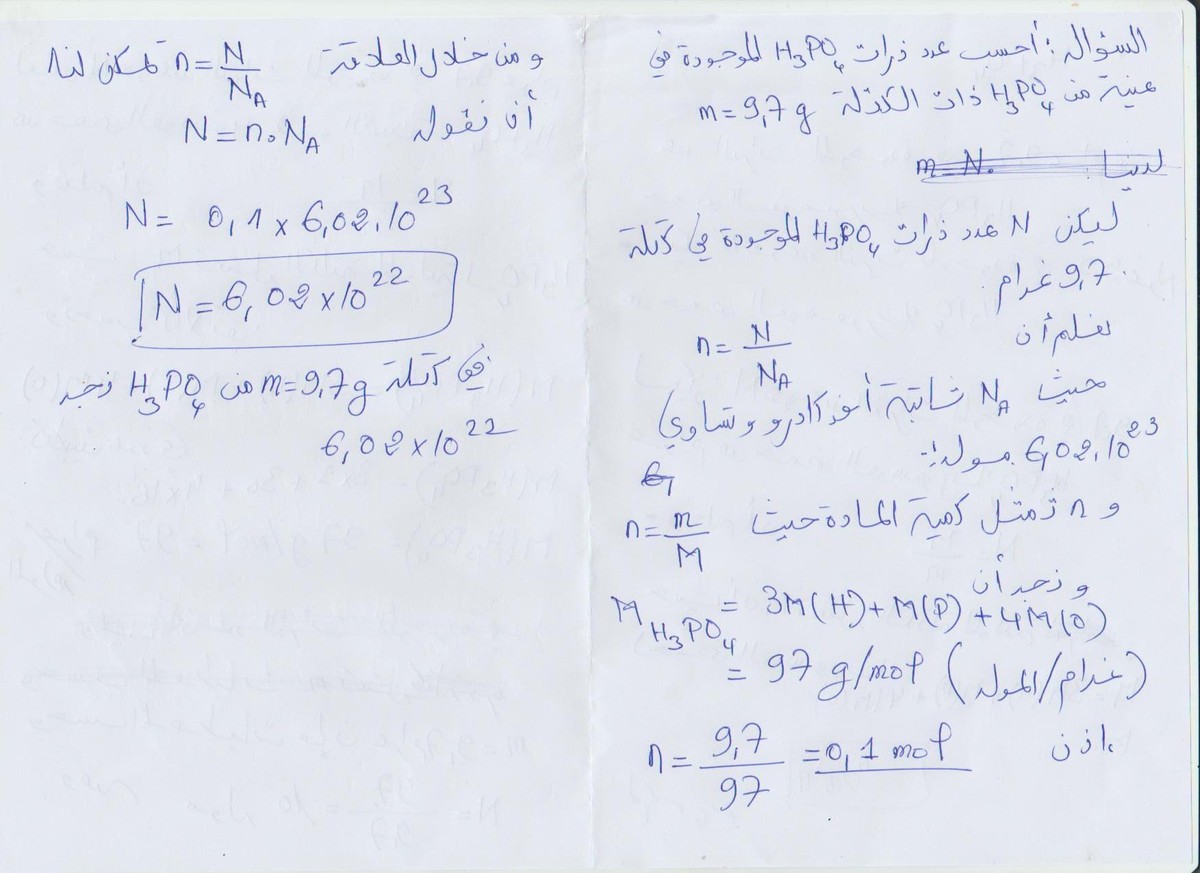 السؤال: أحسب عدد ذرات H₃PO₄ الموجودة في
عينة من H₃PO₄ ذات الكتلة m = 9,7 g
لدينا: m = N.
ليكن N عدد ذرات H₃PO₄ الموجودة في كتلة
9,7 غرام.
نعلم أن n = N/N_A
حيث N_A ثابتة أفوكادرو وتساوي
6,02.10²³ مول⁻¹
6,
و n تمثل كمية المادة حيث n = m/M
و نجد أن
M_H₃PO₄ = 3M(H) + M(P) + 4M(O)
= 97 g/mol (غرام/المول)
اذن n = 9,7/97 = 0,1 mol
و من خلال العلاقة n = N/N_A يمكن لنا
أن نقول N = n.N_A
N = 0,1 x 6,02.10²³
N = 6,02 x 10²²
في كتلة m = 9,7 g من H₃PO₄ نجد
6,02 x 10²²